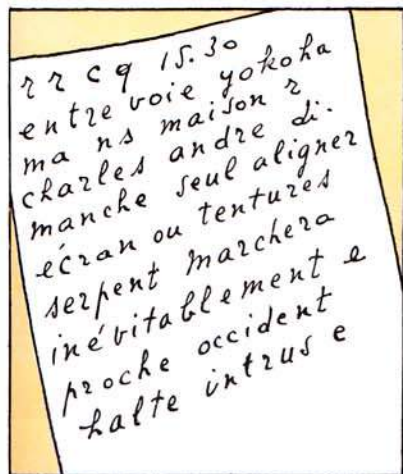 r r c q 15.30
entre voie yokoha
ma ns maison r
charles andre di.
manche seul aligner
écran ou tentures
serpent marchera
inévitablement e
proche occident
halte intrus e